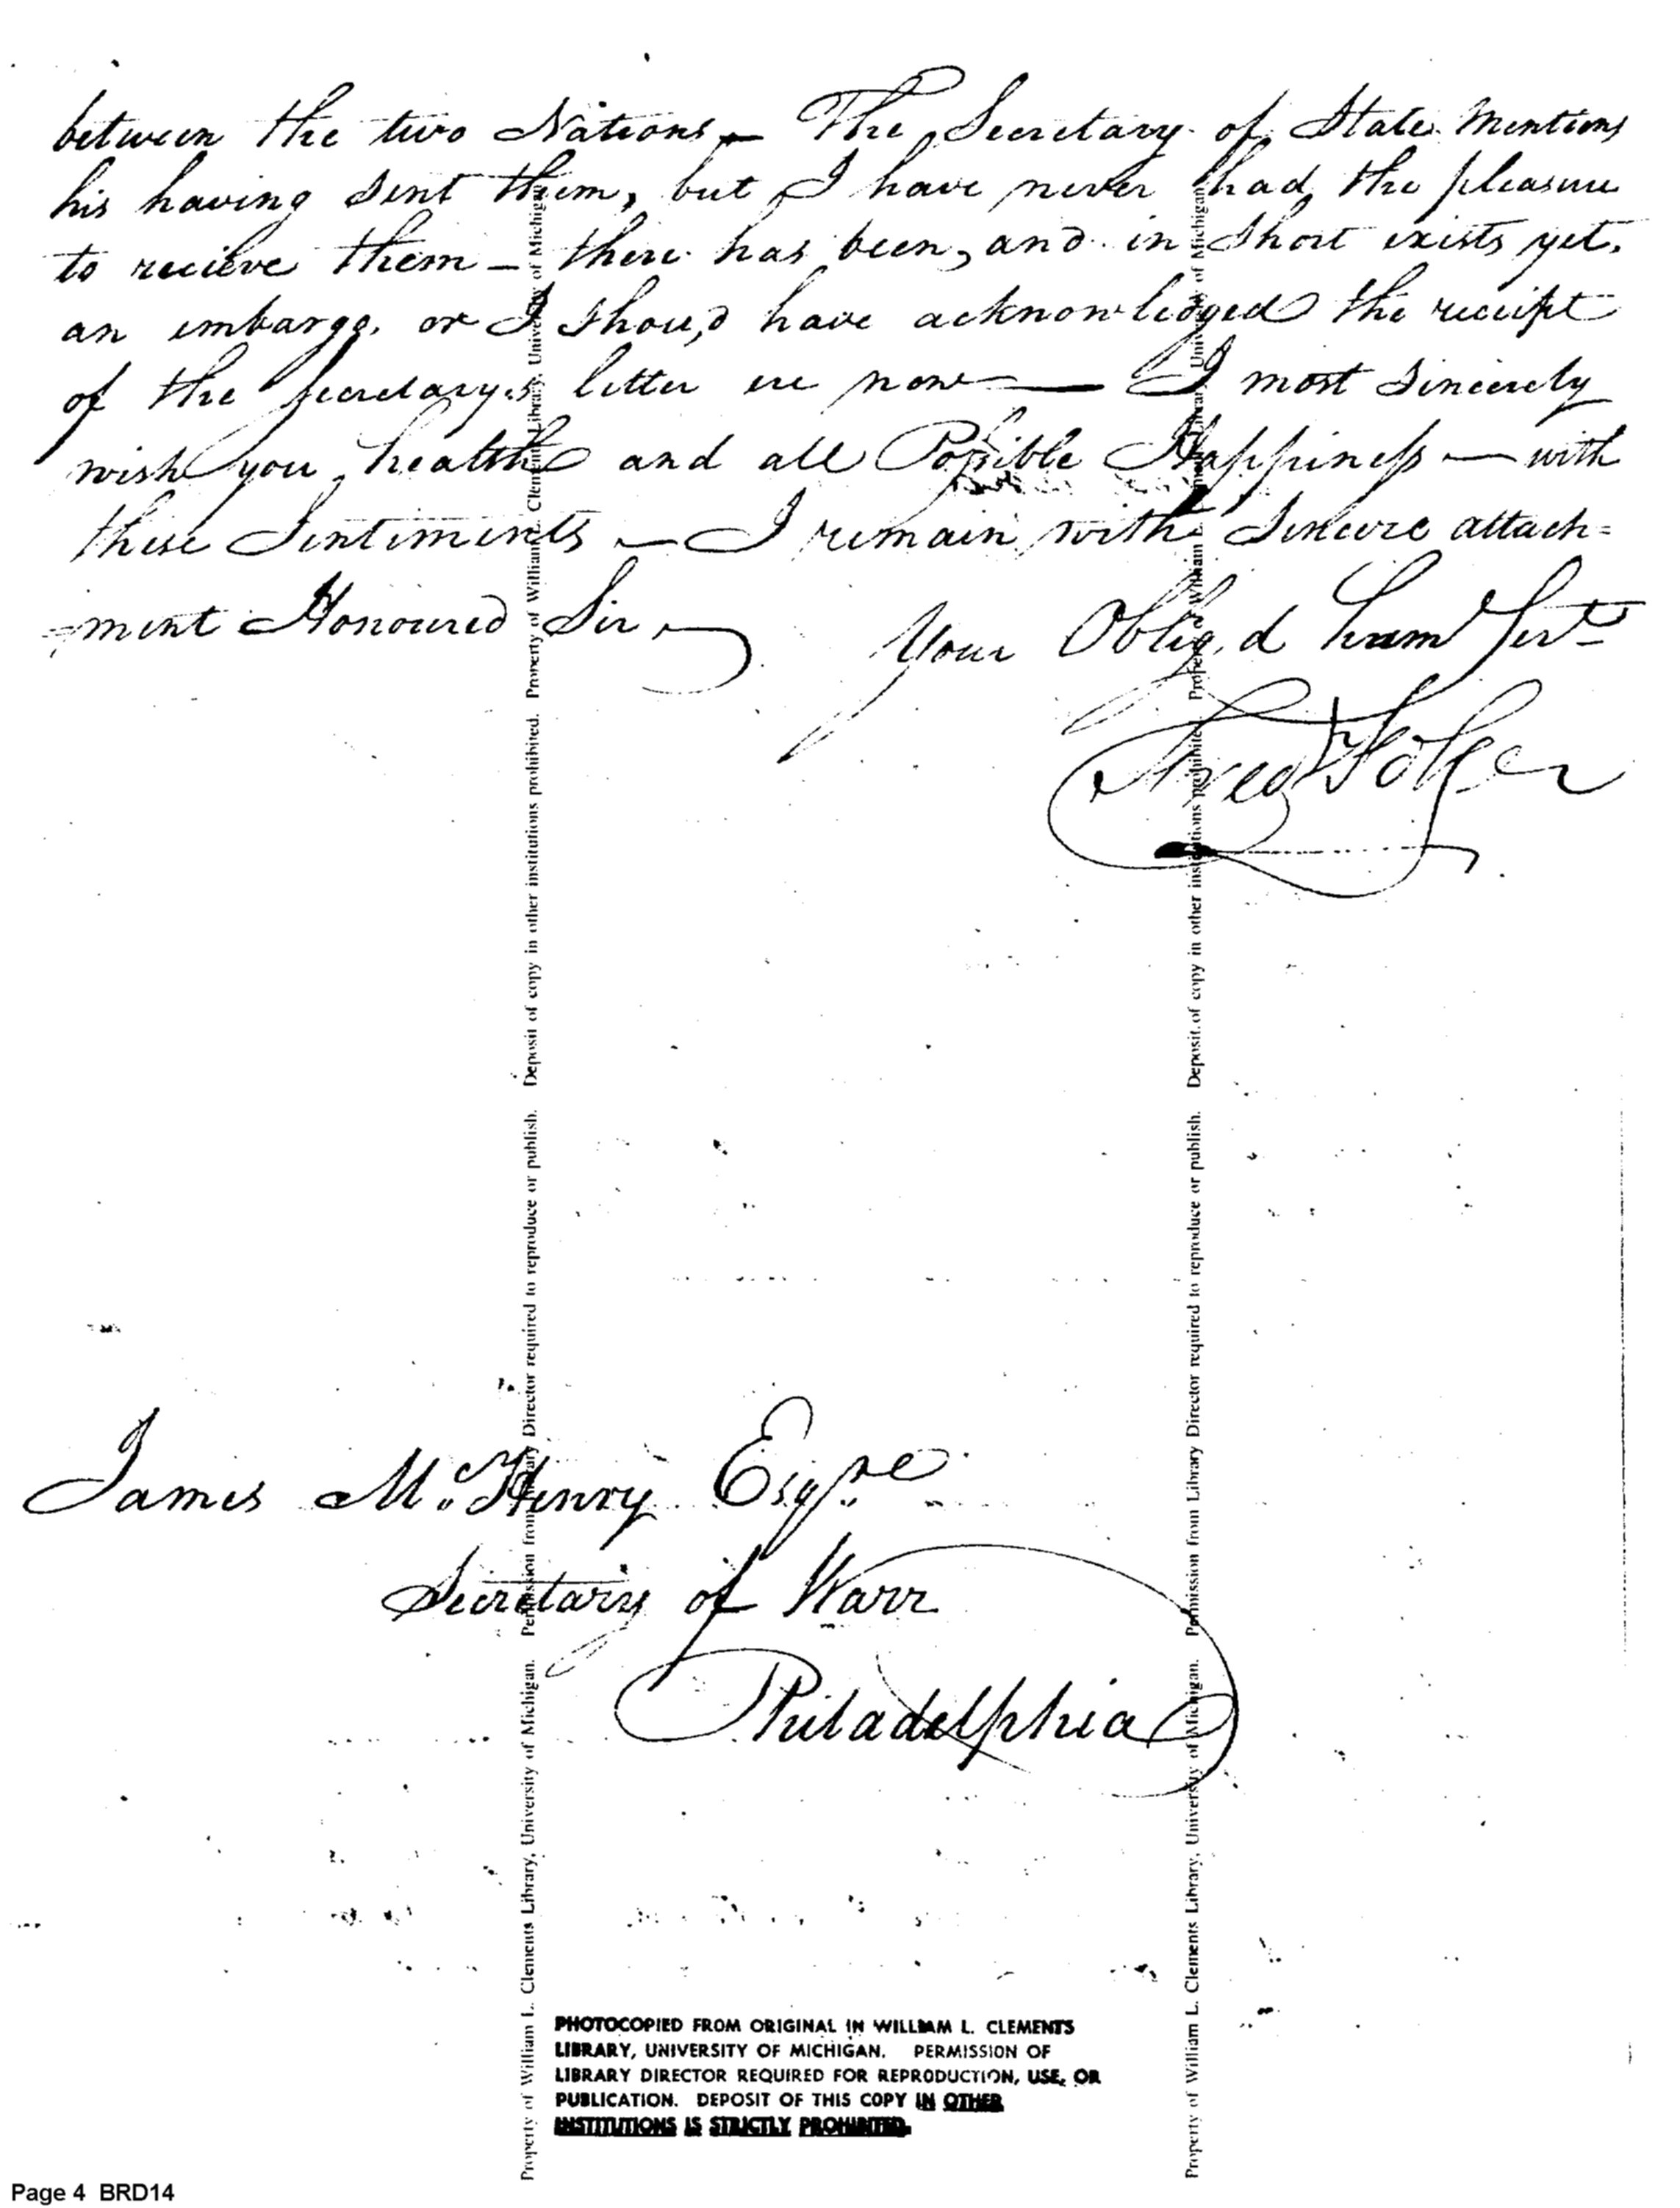 between the two Nations — The Secretary of State Mentions
his having sent them, but I have never had the pleasure
to recieve them — there has been, and in short exists yet,
an embargo, or I shou,d have acknowledged the receipt
of the Secretary,s letter ere now — I most sincerely
wish you health and all Possible Happiness — with
these Sentiments — I remain with Sincere attach=
=ment Honoured Sir
Your Oblig,d Hum Servt
Fred
James McHenry Esqre
Secretary of Warr
Philadelphia
Property of William L. Clements Library, University of Michigan. Permission from Library Director required to reproduce or publish. Deposit of copy in other institutions prohibited. Property of William L. Clements Library, University of Michigan
Property of William L. Clements Library, University of Michigan. Permission from Library Director required to reproduce or publish. Deposit of copy in other institutions prohibited. Property of William L. Clements Library, University of Michigan
PHOTOCOPIED FROM ORIGINAL IN WILLIAM L. CLEMENTS
LIBRARY, UNIVERSITY OF MICHIGAN. PERMISSION OF
LIBRARY DIRECTOR REQUIRED FOR REPRODUCTION, USE, OR
PUBLICATION. DEPOSIT OF THIS COPY IN OTHER
INSTITUTIONS IS STRICTLY PROHIBITED.
Page 4 BRD14